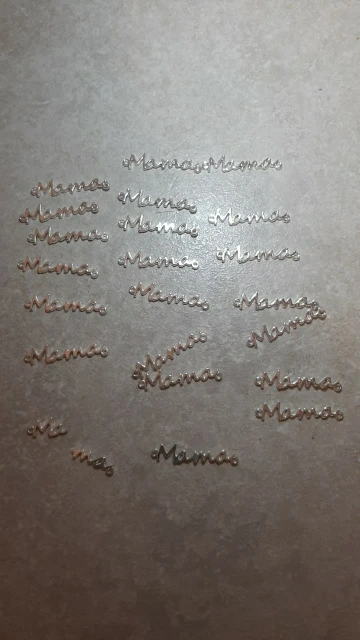 Mama Mama
Mama Mama
Mama Mama Mama
Mama
Mama Mama Mama
Mama Mama Mama
Mama
Mama Mama
Mama Mama
Mama
Ma
ma Mama